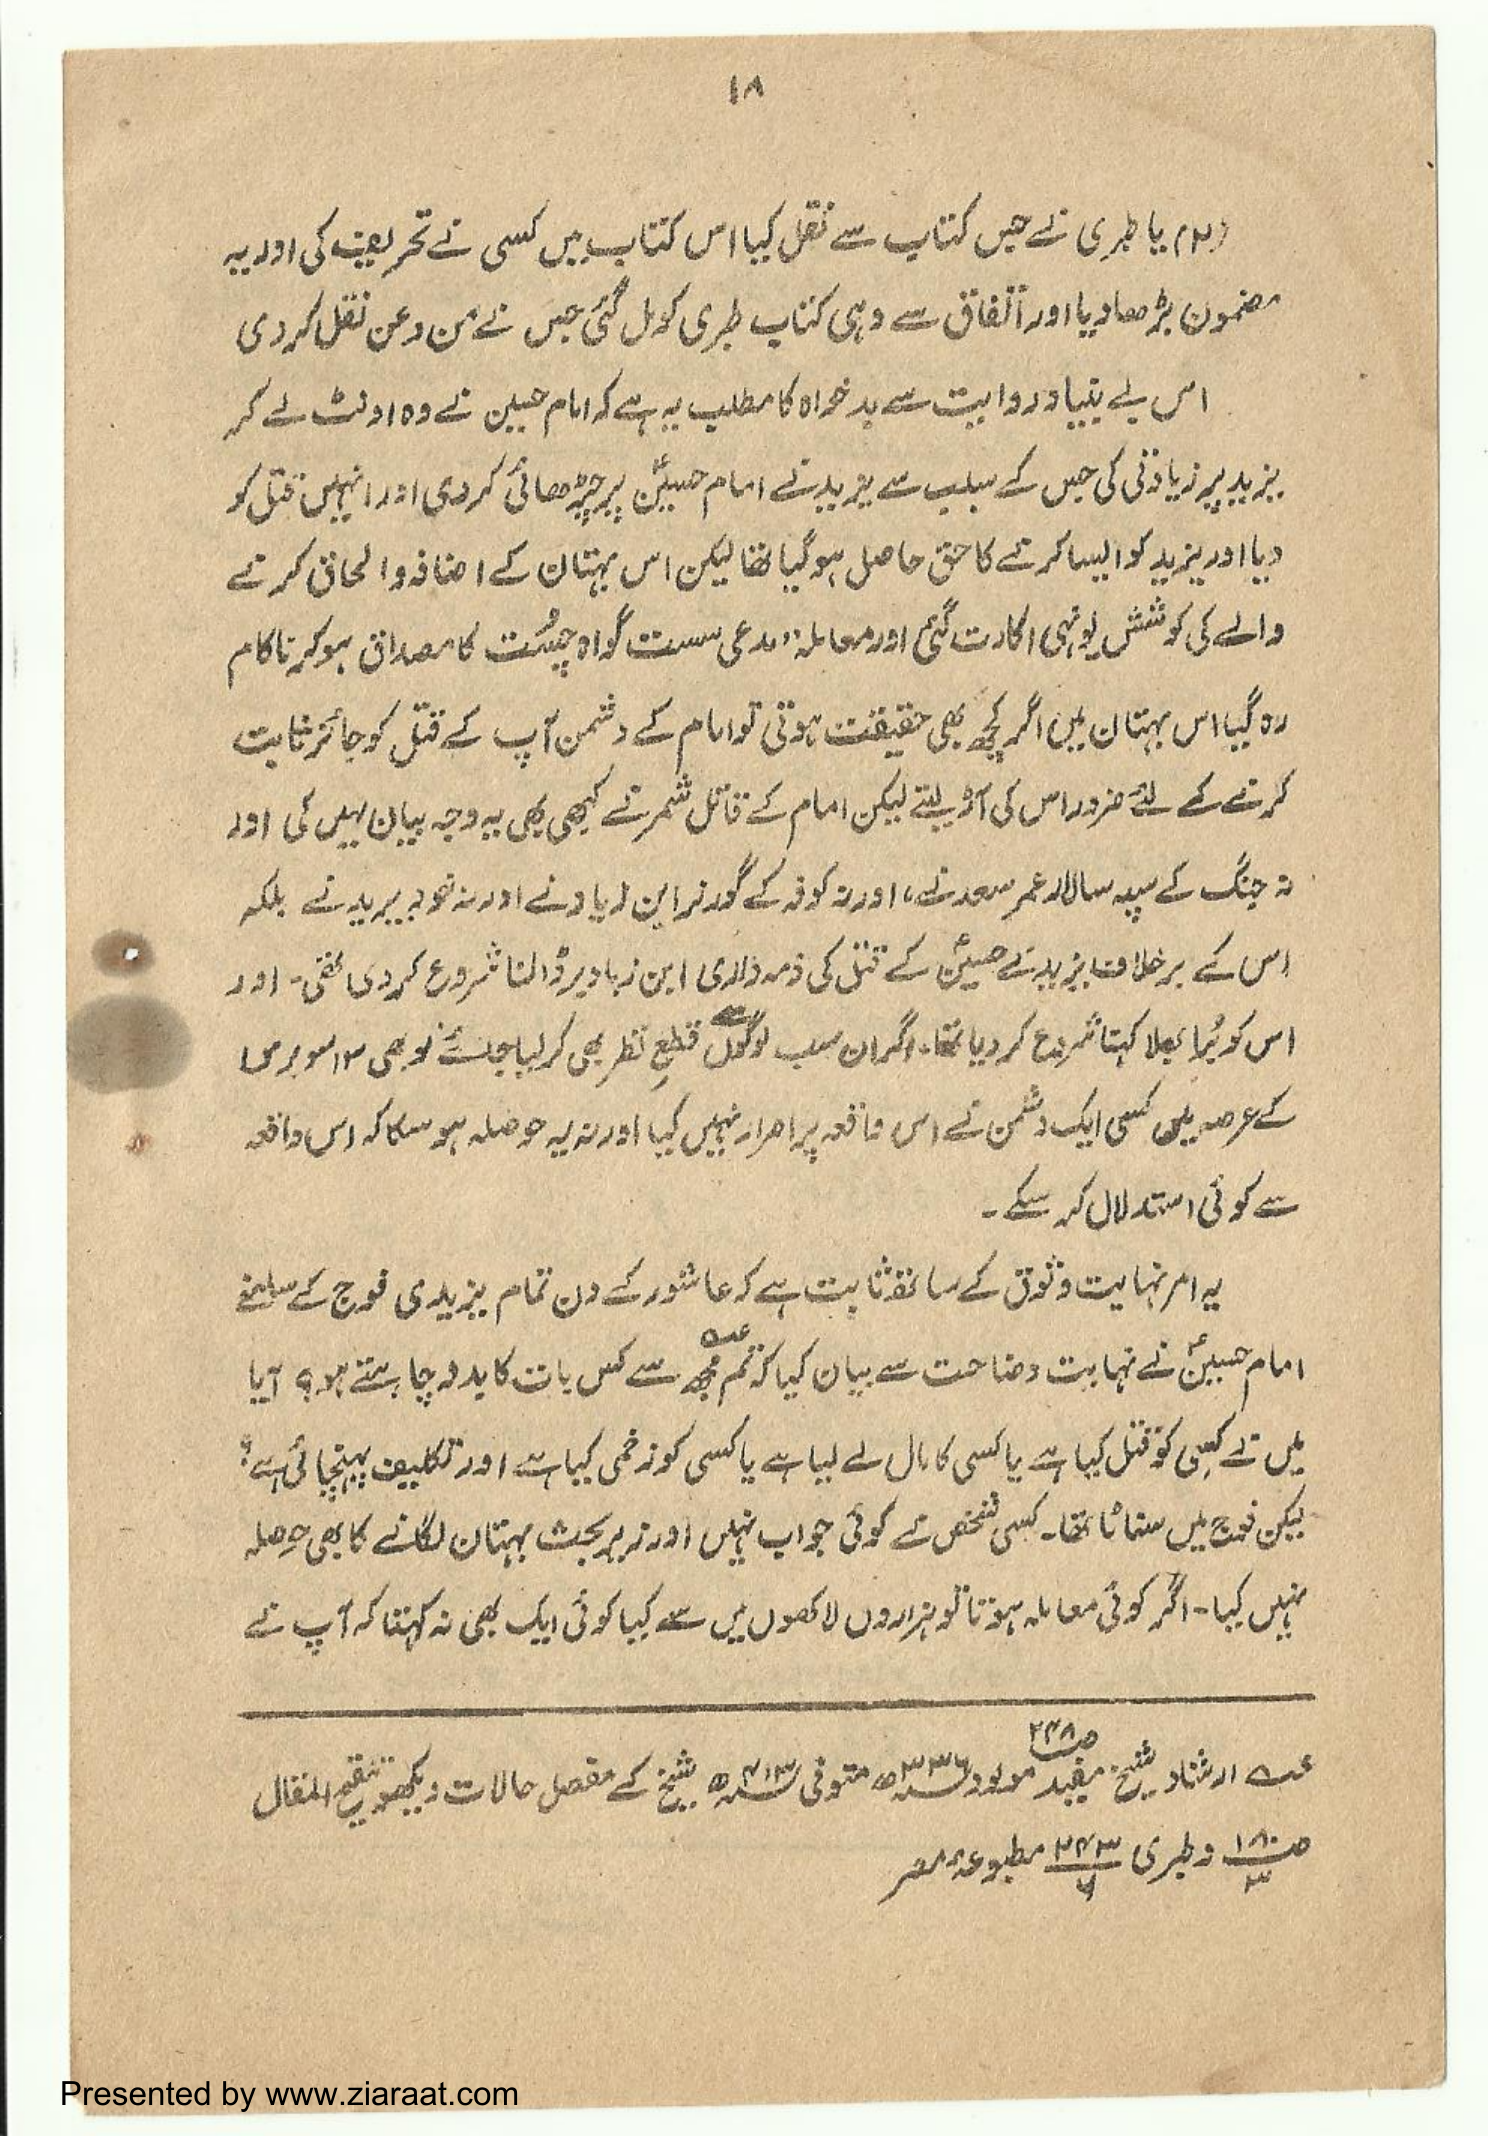 ۱۸
(۲) یا طبری نے جس کتاب سے نقل کیا اس کتاب میں کسی نے تحریف کی اور یہ
مضمون بڑھا دیا اور اتفاق سے وہی کتاب طبری کو مل گئی جس نے من و عن نقل کر دی
اس بے بنیاد روایت سے بدخواہ کا مطلب یہ ہے کہ امام حسین نے وہ اونٹ لے کر
یزید پر زیادتی کی جس کے سبب سے یزید نے امام حسینؑ پر چڑھائی کر دی اور انہیں قتل کو
دیا اور یزید کو ایسا کرنے کا حق حاصل ہو گیا تھا لیکن اس بہتان کے اضافہ و الحاق کرنے
والے کی کوشش یونہی اکارت گئی اور معاملہ "مدعی سست گواہ چُست کا مصداق ہو کر ناکام
رہ گیا اس بہتان میں اگر کچھ بھی حقیقت ہوتی تو امام کے دشمن آپ کے قتل کو جائز ثابت
کرنے کے لئے ضرور اس کی آڑ لیتے لیکن امام کے قاتل شمر نے کبھی بھی یہ وجہ بیان نہیں کی اور
نہ جنگ کے سپہ سالار عمر سعد نے، اور نہ کوفہ کے گورنر ابن زیاد نے اور نہ خود یزید نے بلکہ
اس کے برخلاف یزید نے حسینؑ کے قتل کی ذمہ داری ابن زیاد پر ڈالنا شروع کر دی تھی۔ اور
اس کو بُرا بھلا کہنا شروع کر دیا تھا۔ اگر ان سب لوگوں سے قطعِ نظر بھی کر لیا جائے تو بھی ۱۳ سو برس
کے عرصہ میں کسی ایک دشمن نے اس واقعہ پر اصرار نہیں کیا اور نہ یہ حوصلہ ہو سکا کہ اس واقعہ
سے کوئی استدلال کر سکے۔
یہ امر نہایت وثوق کے ساتھ ثابت ہے کہ عاشور کے دن تمام یزیدی فوج کے سامنے
امام حسینؑ نے نہایت وضاحت سے بیان کیا کہ تم مجھ عہ سے کس بات کا بدلہ چاہتے ہو؟ آیا
میں نے کسِی کو قتل کیا ہے یا کسی کا مال لے لیا ہے یا کسی کو زخمی کیا ہے اور تکلیف پہنچائی ہے؟
لیکن فوج میں سناٹا تھا۔ کسی شخص نے کوئی جواب نہیں اور زیر بحث بہتان لگانے کا بھی حوصلہ
نہیں کیا۔ اگر کوئی معاملہ ہوتا تو ہزاروں لاکھوں میں سے کیا کوئی ایک بھی نہ کہتا کہ آپ نے
عہ ارشاد شیخ مفید ص۲۴۸ مولود ۳۳۶ھ متوفی ۴۱۳ھ شیخ کے مفصل حالات دیکھو تنقیح المقال
ص ۱۸۰/۳ و طبری ۲۴۳/۶ مطبوعۂ مصر
Presented by www.ziaraat.com